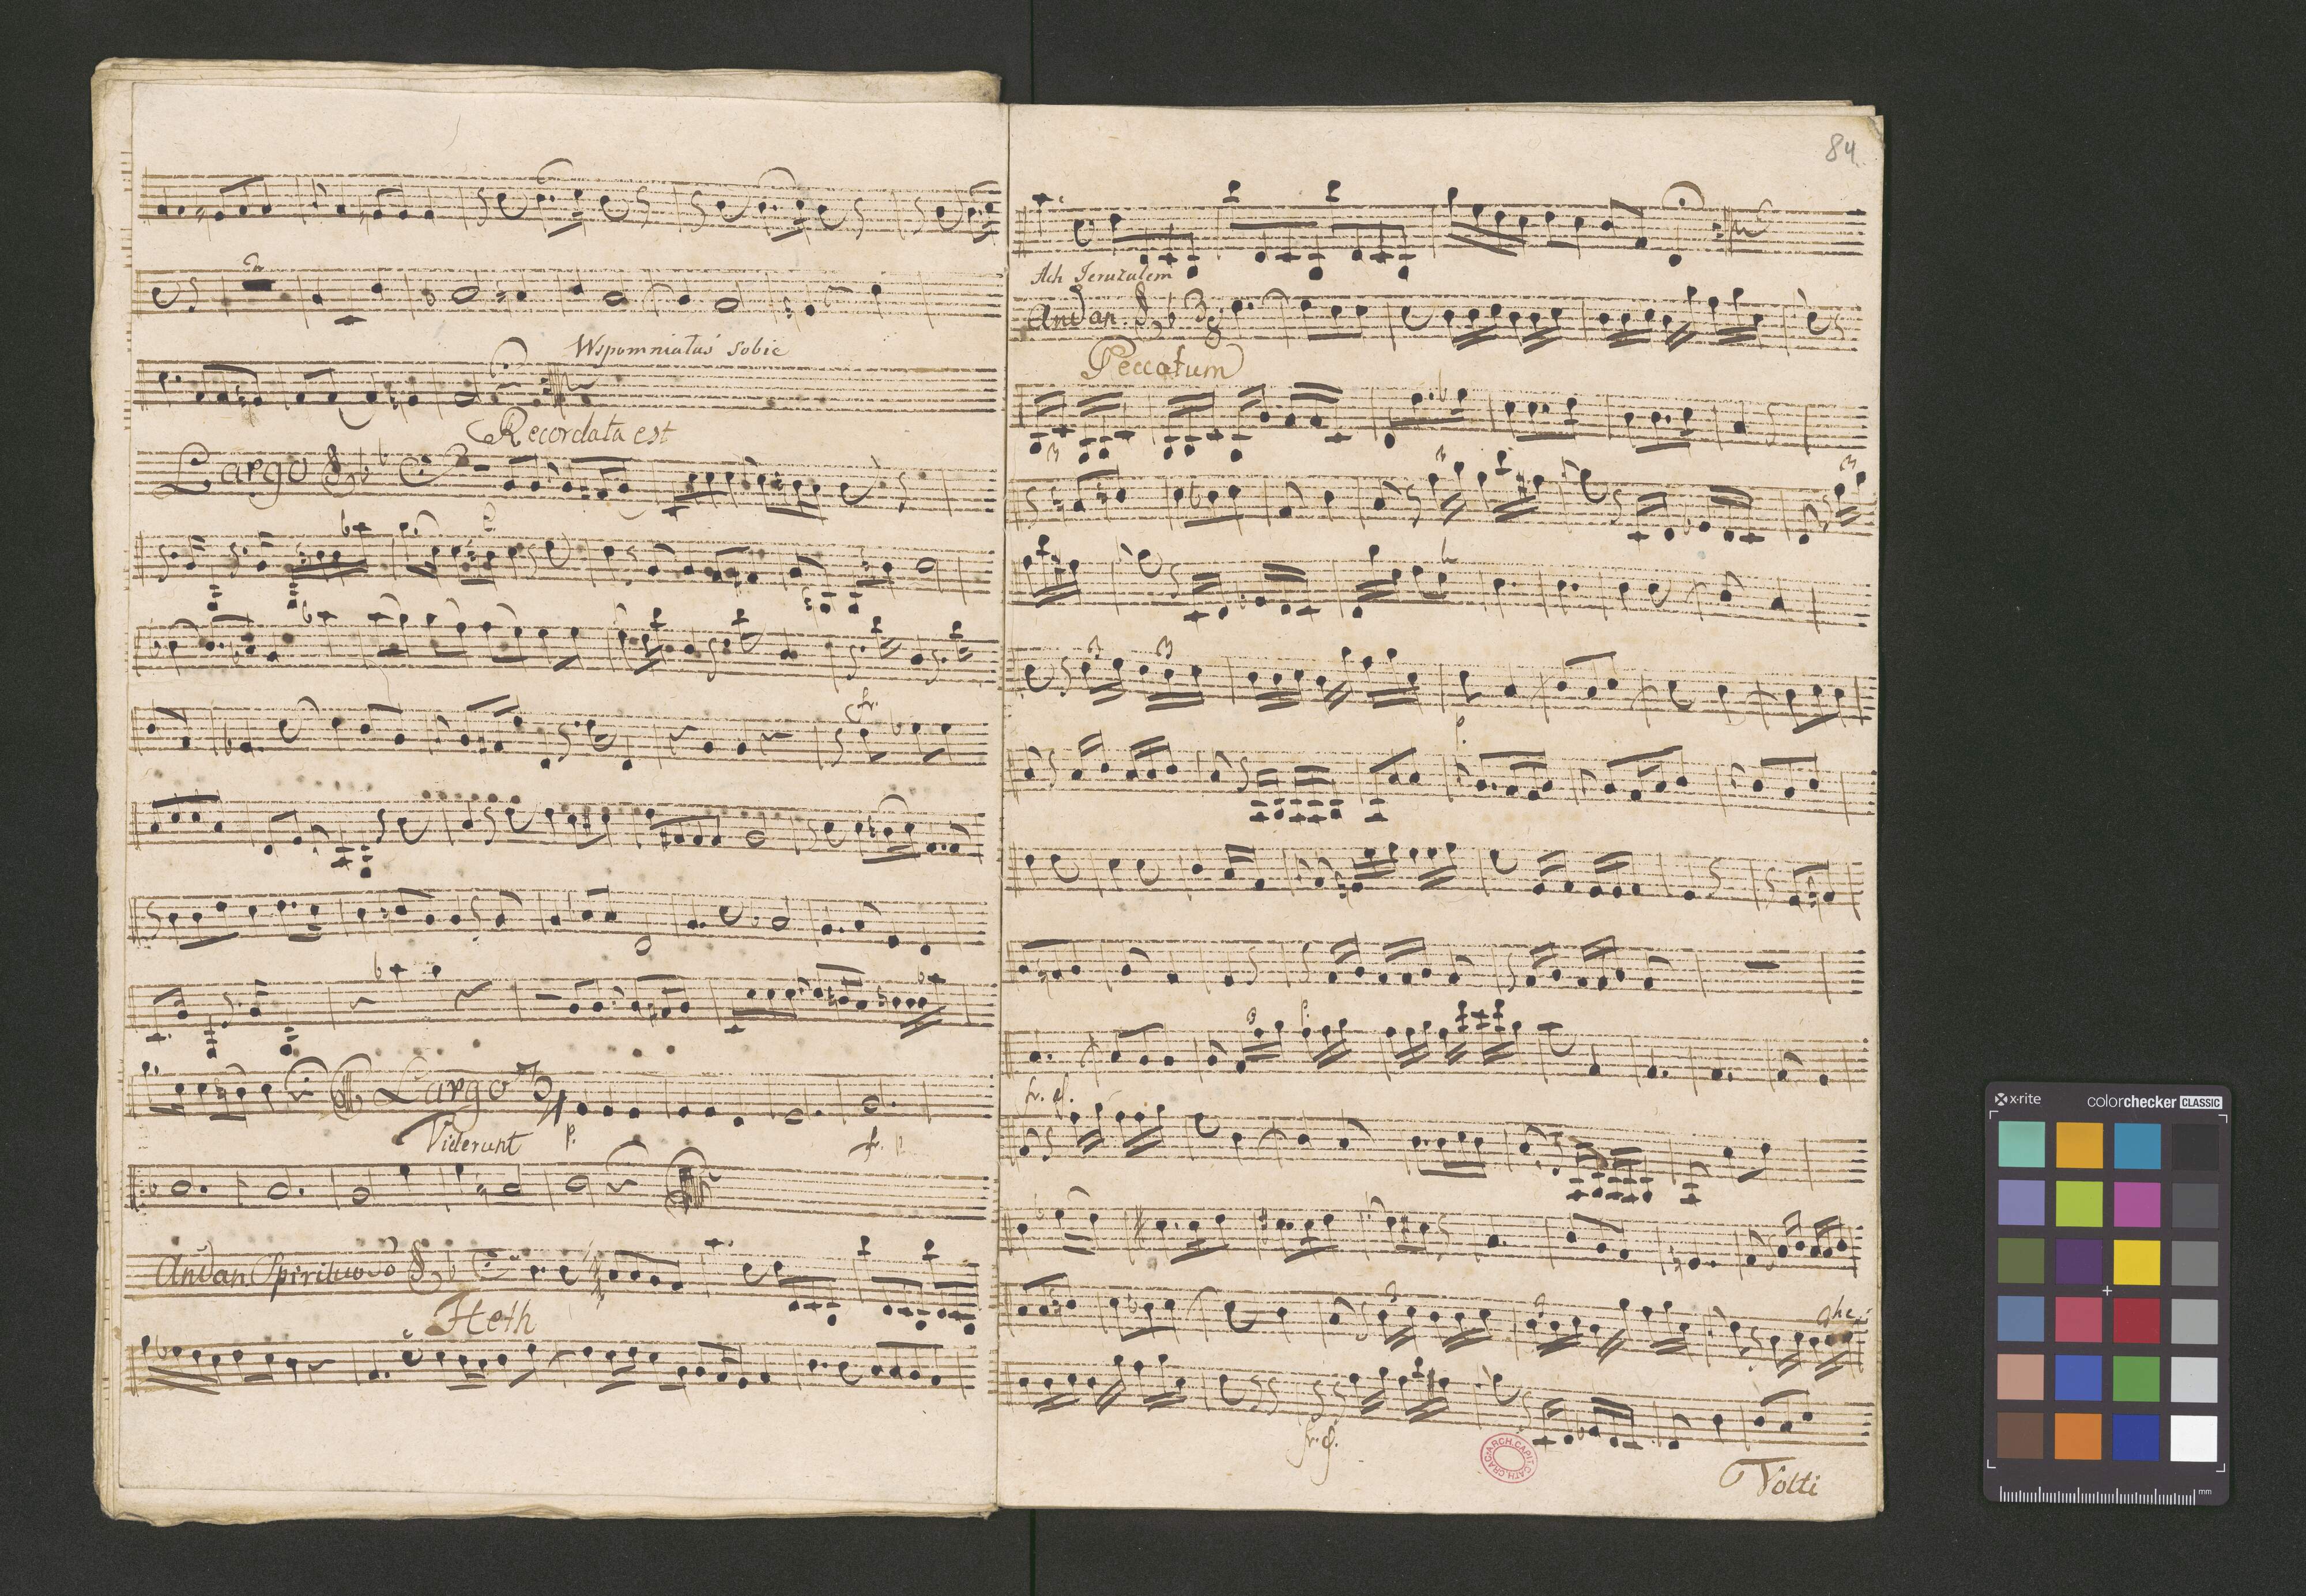 Wspomniałaś sobie
Recordata est
Largo
fr.
Largo 3/4
Viderunt p. fr. p
Andan. Spirituoso
Heth
84.
Ach Jeruzalem
Andan. 3/8
Peccatum
3
3
3
3 3
p
3 p
fr.
3 3
Volti
ARCH. CAPIT. CATH. CRAC.
x-rite colorchecker CLASSIC
mm